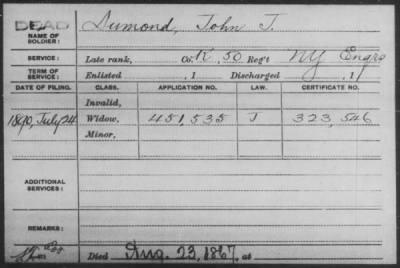 DEAD
NAME OF SOLDIER: Dumond, John T.
SERVICE: Late rank, Co. K, 50 Reg't NY Engrs
TERM OF SERVICE: Enlisted , 1 Discharged , 1
DATE OF FILING. CLASS. APPLICATION NO. LAW. CERTIFICATE NO.
Invalid,
1890, July 24 Widow, 451,535 J 323,546
Minor,
ADDITIONAL SERVICES:
REMARKS:
Died Aug. 23, 1867, at